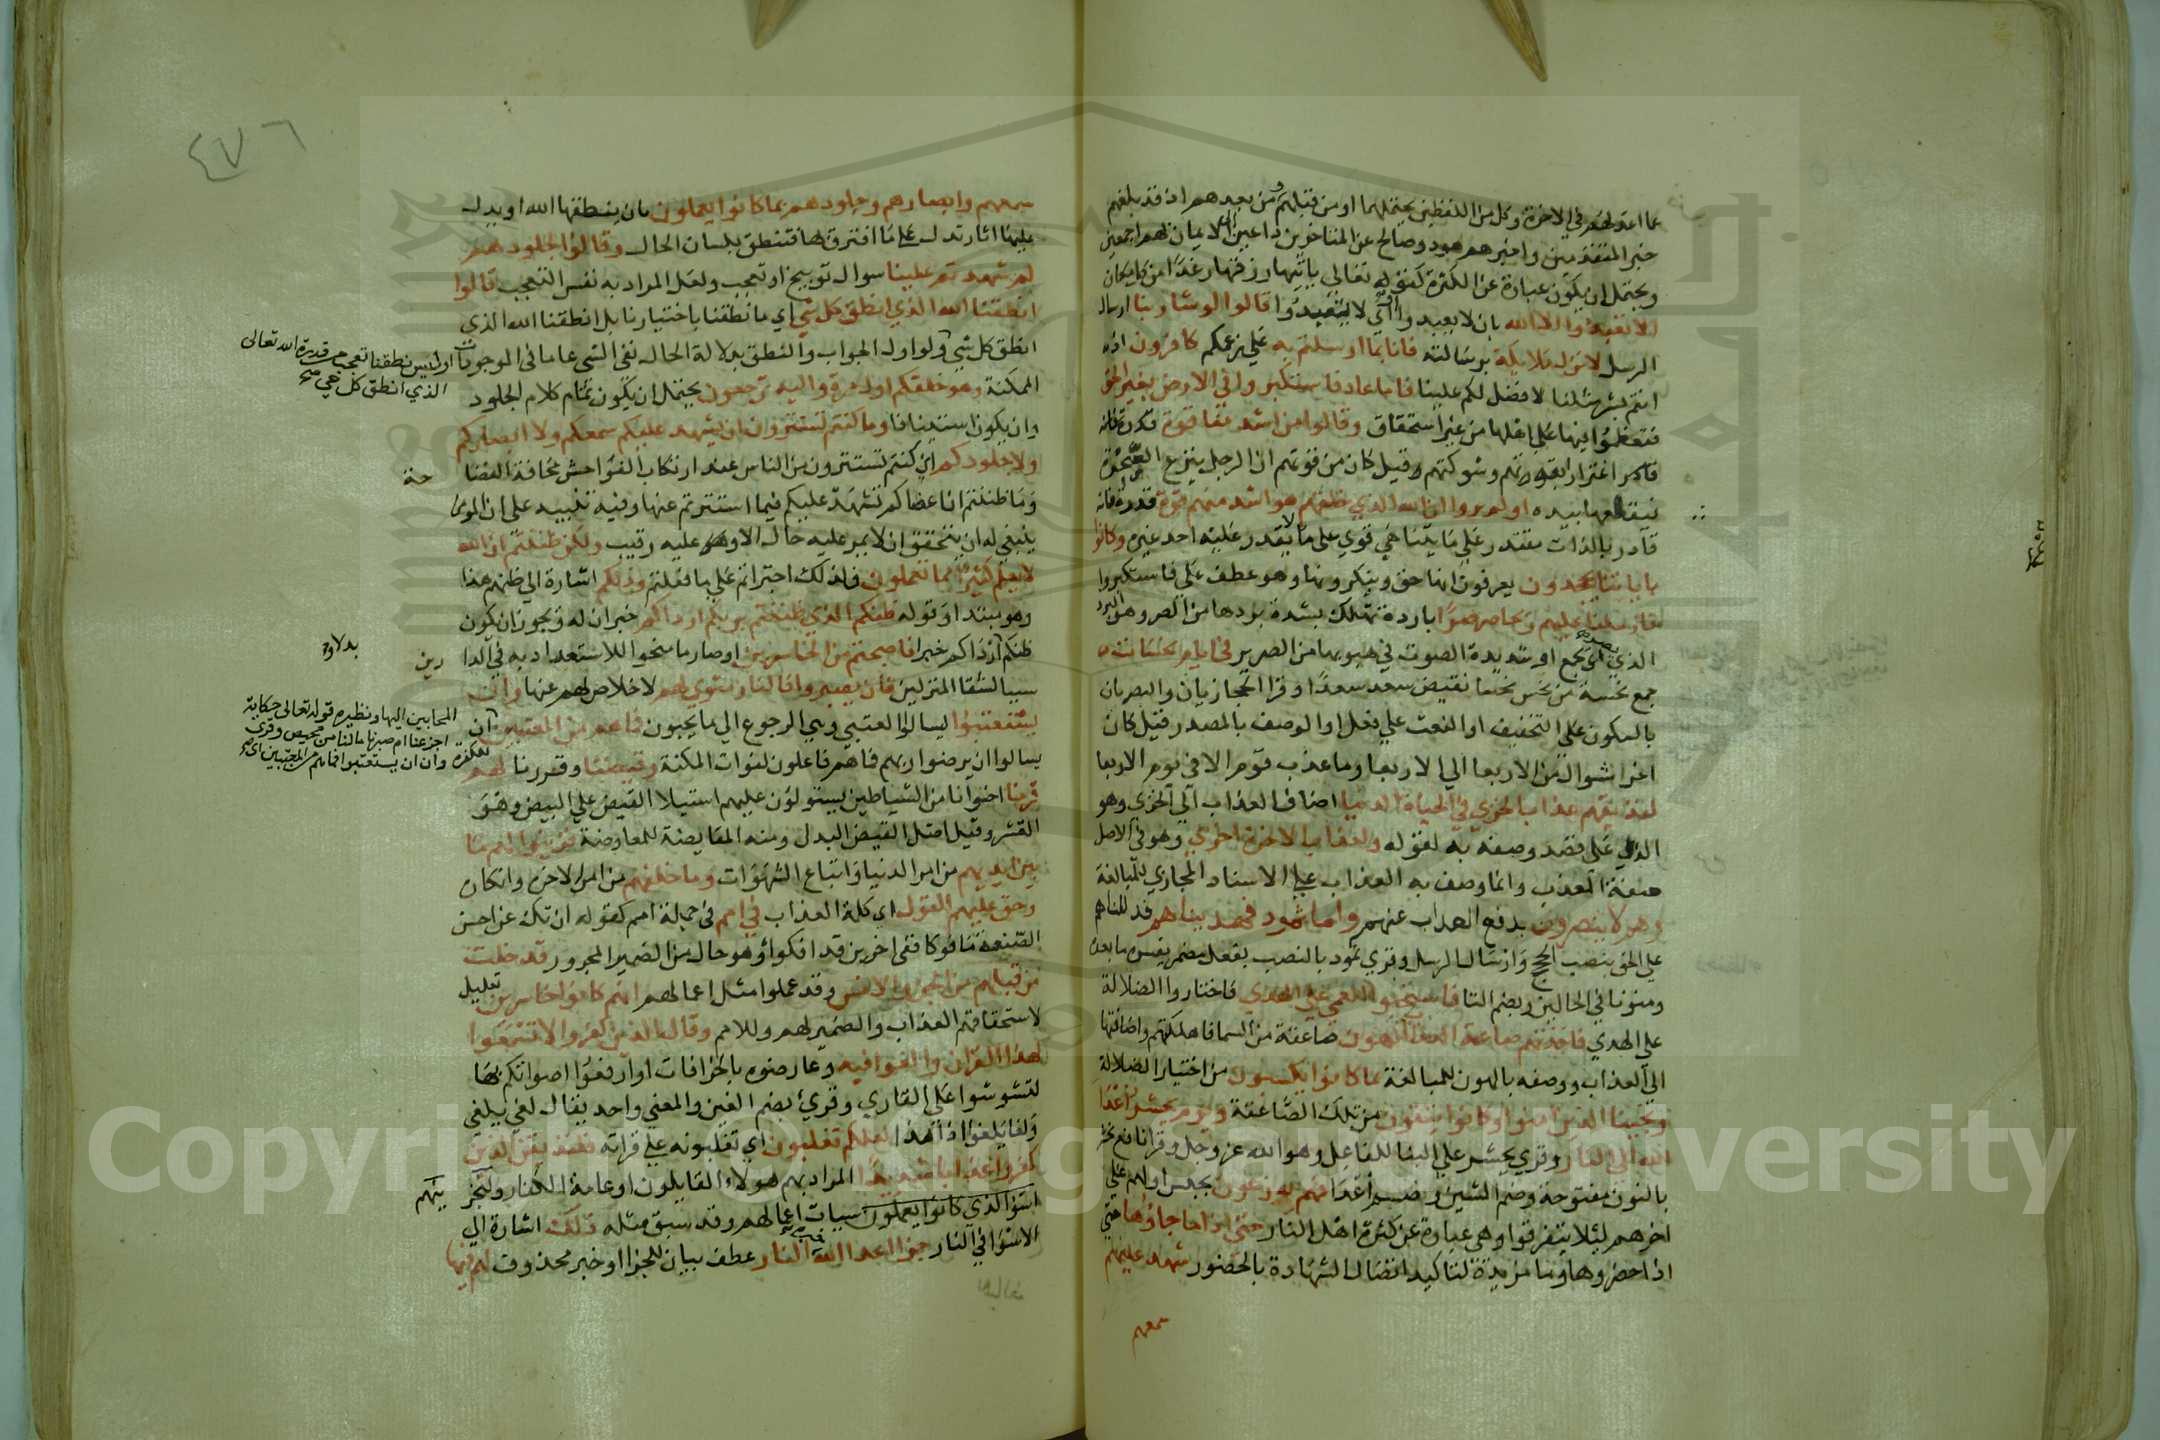 عما اعد لهم في الاخرة وكل من اللفظين يحتملهما او من قبلهم ومن بعدهم اذ قد بلغهم
خبر المتقدمين واخبرهم هود وصالح عن المتاخرين داعين الى الايمان بهم اجمعين
ويحتمل ان يكون عبارة عن الكثرة كقوله تعالى ياتيها رزقها رغدا من كل مكان
الا تعبدوا الا الله بان لا تعبدوا او اي لا تعبدوا قالوا لو شا ربنا ارسال
الرسل لانزل ملايكة برسالته فانا بما ارسلتم به على زعمكم كافرون اذ
انتم بشر مثلنا لا فضل لكم علينا فاما عاد فاستكبروا في الارض بغير الحق
فتعظموا فيها على اهلها من غير استحقاق وقالوا من اشد منا قوة
اغترارا بقوتهم وشوكتهم وقيل كان من قوتهم ان الرجل ينزع الصخرة
فيقلعها بيده اولم يروا ان الله الذي خلقهم هو اشد منهم قوة قدرة فانه
قادر بالذات مقتدر على ما لا يتناهى قوي على ما لا يقدر عليه احد غيره وكانوا
باياتنا يجحدون يعرفون انها حق وينكرونها وهو عطف على فاستكبروا
فارسلنا عليهم ريحا صرصرا باردة تهلك بشدة بردها من الصر وهو البرد
الذي يجمع او شديدة الصوت في هبوبها من الصرير في ايام نحسات
جمع نحسة من نحس نحسا نقيض سعد سعدا وقرا الحجازيان والبصريان
بالسكون على التخفيف او النعت على فعل او الوصف بالمصدر قيل كان
اخر شوال من الاربعا الى الاربعا وما عذب قوم الا في يوم الاربعا
لنذيقهم عذاب الخزي في الحياة الدنيا اضاف العذاب الى الخزي وهو
الذل على قصد وصفه به لقوله ولعذاب الاخرة اخزى وهو في الاصل
صفة المعذب وانما وصف به العذاب على الاسناد المجازي للمبالغة
وهم لا ينصرون بدفع العذاب عنهم واما ثمود فهديناهم فدللناهم
على الحق بنصب الحجج وارسال الرسل وقري ثمود بالنصب بفعل مضمر يفسره ما بعده
ومنونا في الحالين وبضم الثا فاستحبوا العمى على الهدى فاختاروا الضلالة
على الهدى فاخذتهم صاعقة العذاب الهون صاعقة من السما فاهلكتهم واضافتها
الى العذاب ووصفه بالهون للمبالغة بما كانوا يكسبون من اختيار الضلالة
ونجينا الذين امنوا وكانوا يتقون من تلك الصاعقة ويوم يحشر اعدا
الله الى النار وقري يحشر على البنا للفاعل وهو الله عز وجل وقرا نافع نحشر
بالنون مفتوحة وضم الشين ونصب اعدا فهم يوزعون يحبس اولهم على
اخرهم ليلا يتفرقوا وهي عبارة عن كثرة اهل النار حتى اذا ما جاوها حتى
اذا حضروها وما مزيدة لتاكيد اتصال الشهادة بالحضور شهد عليهم
سمعهم
٤٧٦
سمعهم وابصارهم وجلودهم بما كانوا يعملون بان ينطقها الله او يدل
عليها اثار تدل على ما اقترف بها فتنطق بلسان الحال وقالوا لجلودهم
لم شهدتم علينا سوال توبيخ او تعجب ولعل المراد به نفس التعجب قالوا
انطقنا الله الذي انطق كل شي اي ما نطقنا باختيارنا بل انطقنا الله الذي
انطق كل شي ولو اول الجواب والنطق بدلالة الحال نفى الشي عاما في الموجودات
الممكنة وهو خلقكم اول مرة واليه ترجعون يحتمل ان يكون تمام كلام الجلود
وان يكون استينافا وما كنتم تستترون ان يشهد عليكم سمعكم ولا ابصاركم
ولا جلودكم اي كنتم تستترون من الناس عند ارتكاب الفواحش مخافة الفضا
حة
وما ظننتم ان اعضاكم تشهد عليكم فيما استترتم عنها وفيه تنبيه على ان المومن
ينبغي له ان يتحقق ان لا يمر عليه حال الا وهو عليه رقيب ولكن ظننتم ان الله
لا يعلم كثيرا مما تعملون فلذلك اجتراتم على ما فعلتم وذلكم اشارة الى ظنهم هذا
وهو مبتدا وقوله ظنكم الذي ظننتم بربكم ارداكم خبران له ويجوز ان يكون
ظنكم
بدلا و
ارداكم خبرا فاصبحتم من الخاسرين اذ صار ما منحوا للاستعداد به في الدا
رين
سببا لشقا المنزلين فان يصبروا فالنار مثوى لهم لا خلاص لهم عنها وان
يستعتبوا يسالوا العتبى وهي الرجوع الى ما يحبون فما هم من المعتبين
المجابين اليها ونظيره قوله تعالى حكاية
اجزعنا ام صبرنا ما لنا من محيص وقري
وان ان يستعتبوا فما هم من المعتبين اي
يسالوا ان يرضوا ربهم فما هم فاعلون لفوات المكنة وقيضنا وقدرنا لهم
للكفرة
قرنا اخدانا من الشياطين يستولون عليهم استيلا القيض على البيض وهو
القشر وقيل اصل القيض البدل ومنه المقايضة للمعاوضة فزينوا لهم ما
بين ايديهم من امر الدنيا واتباع الشهوات وما خلفهم من امر الاخرة وانكاره
وحق عليهم القول اي كلمة العذاب في امم في جملة امم كقوله ان تك عن احسن
الصنيعة مافوكا ففي اخرين قد افكوا وهو حال من الضمير المجرور قد خلت
من قبلهم من الجن والانس وقد عملوا مثل اعمالهم انهم كانوا خاسرين تعليل
لاستحقاقهم العذاب والضمير لهم وللامم وقال الذين كفروا لا تسمعوا
لهذا القران والغوا فيه وعارضوه بالخرافات او ارفعوا اصواتكم بها
لتشوشوا على القاري وقري بضم الغين والمعنى واحد يقال لغي يلغى
ولغا يلغوا اذا هذا لعلكم تغلبون اي تغلبونه على قراته فلنذيقن الذين
كفروا عذابا شديدا المراد بهم هولاء القايلون او عامة الكفار ولنجز
ينهم
اسوا الذي كانوا يعملون سيات اعمالهم وقد سبق مثله ذلك اشارة الى
الاسوا في النار جزا اعدا الله النار عطف بيان للجزا او خبر محذوف لهم فيها
او ليس نطقنا تعجب من قدرة الله تعالى
الذي انطق كل حي صح
Copyright © King Saud University